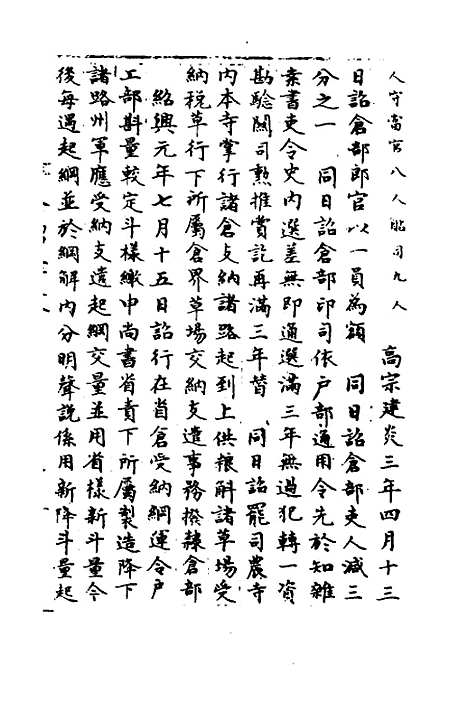 人守當官八人貼司九人　高宗建炎三年四月十三
日詔倉部郎官以一員為額　同日詔倉部吏人減三
分之一　同日詔倉部印司依戶部通用令先於知雜
案書吏令史內選差無即通選滿三年無過犯轉一資
勘驗關司勲推賞訖再滿三年替　同日詔罷司農寺
內本寺掌行諸倉支納諸路起到上供糧斛諸草場受
納稅草行下所屬倉界草場交納支遣事務撥隸倉部
紹興元年七月十五日詔行在省倉受納綱運令戶
工部斟量較定斗樣繳申尚書省責下所屬製造降下
諸路州軍應受納支遣起綱交量並用省樣新斗量令
後每遇起綱並於綱解內分明聲說係用新降斗量起